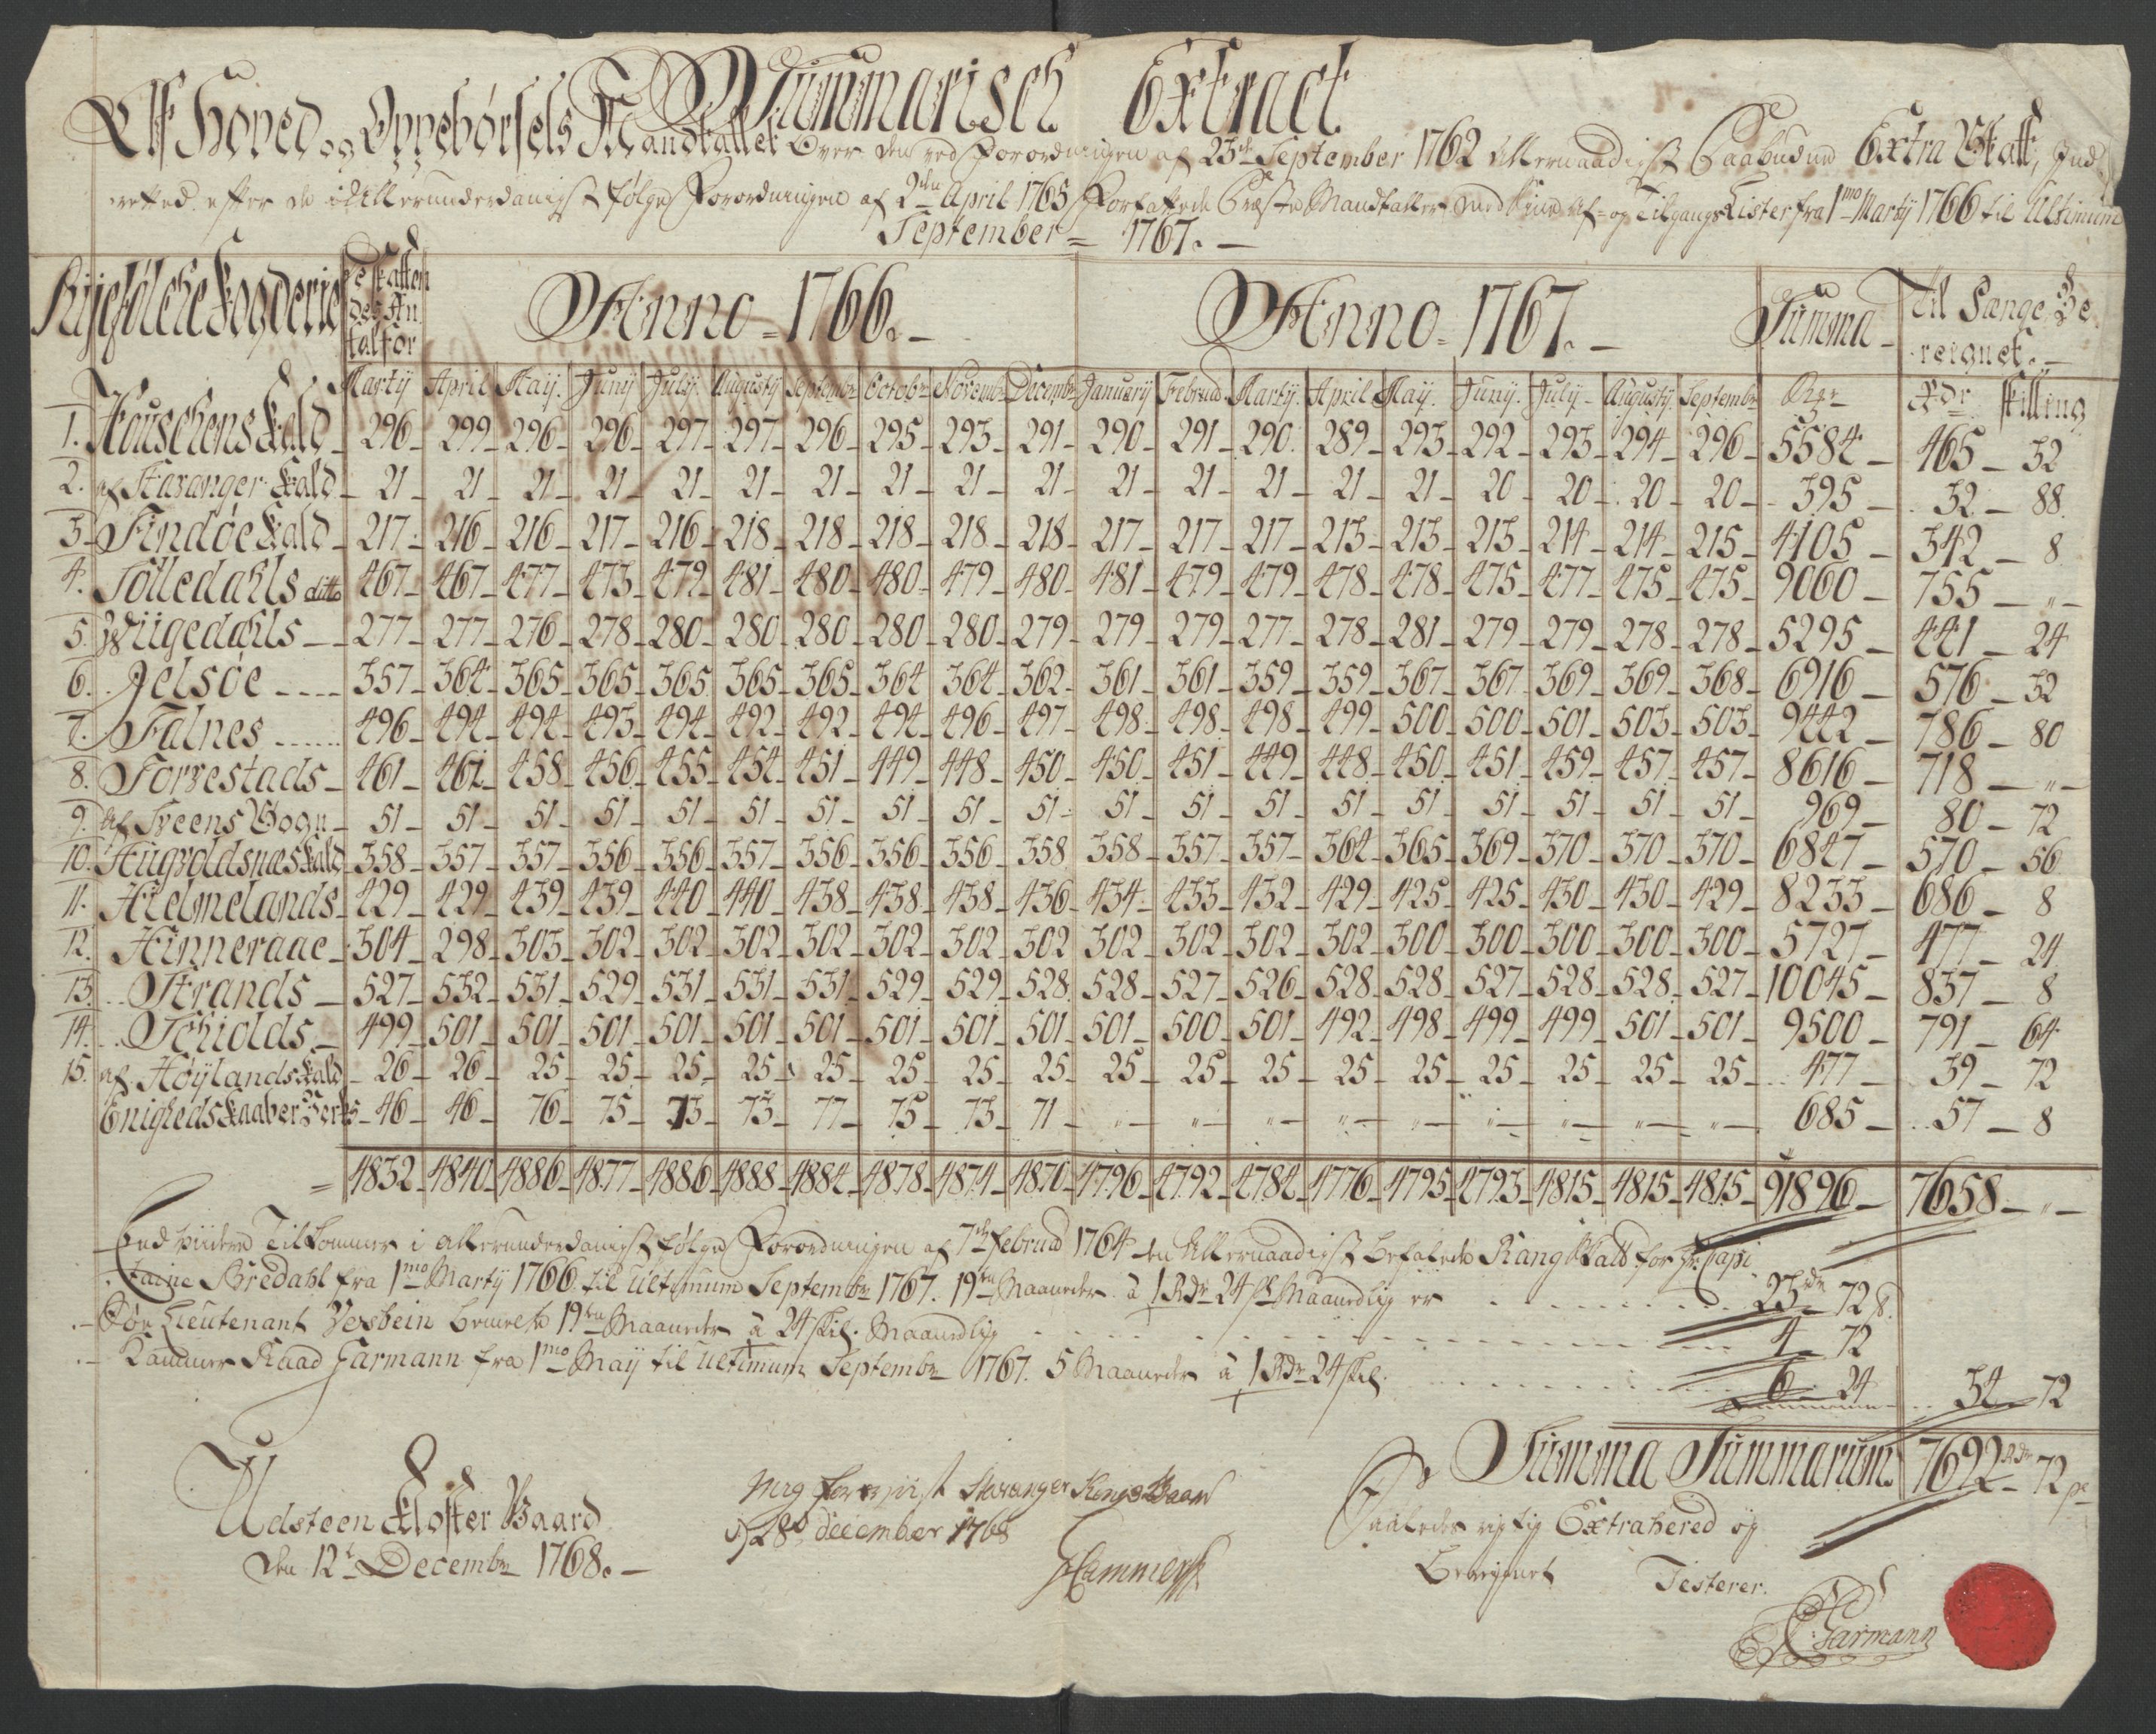 Summarisch Extract
Aff Hoved og Oppebørsels Mandtallet Over den ved Forordningen af 23de September 1762 Allernaadigst Paabudne Extra Skatt, Ind
retted efter de i Allerunderdanigst følge Forordningen af 2den April 1765 Forfattede Præste Mandtaller med Sine Af= og Tilgangs Lister fra 1mo Marty 1766 til Ultimum
September = 1767. —
Ryefylche Fogderie Be skatten des An tal for Anno = 1766. — Anno = 1767. — Summa — Til Penge Be reignet. —
Marty April May. Juny July. Augusty Septembr Octobr Novembr Decembr January Februa. Marty. April May. Juny. July — Augusty. Septembr Rdr skilling
1. Houschens Kald — 296 — 299 — 296 — 296 — 297 — 297 — 296 — 295 — 293 — 291 — 290 — 291 — 290. 289 — 293 — 292 — 293 — 294 — 296 — 5584 — 465 — 32
2. af Stavanger Kald — 21 — 21 — 21 — 21 — 21 — 21 — 21 — 21 — 21 — 21 — 21 — 21 — 21 — 21 — 21 — 20 — 20 — 20 — 20 — 395 — 32 — 88.
3. Findøe Kald — 217 — 216 — 216 — 217 — 216 — 218 — 218 — 218 — 218 — 218 — 217 — 217 — 217 — 213 — 213 — 213 — 214 — 214 — 215 — 4105 — 342 — 8
4. Sølledahls ditto 467 — 467 — 477 — 473 — 479 — 481 — 480 — 480 — 479 — 480 — 481 — 479 — 479 — 478 — 478 — 475 — 477 — 475 — 475 — 9060 — 755 — " —
5. Wiigedahls — 277 — 277 — 276 — 278 — 280 — 280 — 280 — 280 — 280 — 279 — 279 — 279 — 277 — 278 — 281 — 279 — 279 — 278 — 278 — 5295 — 441 — 24
6. Jelsøe — 357 — 364 — 365 — 365 — 365 — 365 — 365 — 364 364 — 362 — 361 — 361 — 359 — 359 — 367 — 367 — 369 — 369 — 368 — 6916 — 576 — 32
7. Falnes — 496 — 494 — 494 — 493 — 494 — 492 — 492 — 494 — 496 — 497 — 498 — 498 — 498 — 499 — 500 — 500 — 501 — 503 — 503 — 9442 — 786 — 80
8. Torvestads — 461 — 462 — 458 — 456 — 455 — 454 — 451 — 449 — 448 — 450 — 450 — 451 — 449 — 448 — 450 — 451 — 459 — 457 — 457 — 8616 — 718 — " —
9. af Sveens Sogn — 51 — 51 — 51 — 51 — 51 — 51 — 51 — 51 — 51 — 51 — 51 — 51 — 51 — 51 — 51 — 51 — 51 — 51 — 51 — 969 — 80 — 72
10. Augvoldsnæs Kald 358 — 357 — 357 — 356 — 356 — 357 — 356 — 356 — 356 — 358 358 — 357 — 357 — 364 — 365 — 369 — 370 — 370 — 370 — 6847 — 570 — 56
11. Hielmelands — 429 — 429 — 439 — 439 — 440 — 440 — 438 — 438 — 438 — 436 — 434 — 433 — 432 — 429 — 425 — 425 — 430 — 430 — 429 — 8233 — 686 — 8
12. Hinneraae — 304 — 298 — 303 — 302 — 302 — 302 — 302 — 302 — 302 — 302 302 — 302 — 302 — 302 — 300 — 300 — 300 — 300 — 300 — 5727 — 477 — 24
13. Strands — 527 — 532 — 531 — 529 — 531 — 531 — 531 — 529 — 529 — 528 528 — 527 — 526 — 528 — 528 — 527 — 528 — 528 — 527 — 10045 — 837 — 8
14. Schiolds — 499 — 501 — 501 — 501 — 501 — 501 — 501 — 501 — 501 — 501 — 501 — 500 — 501 — 492 — 498 — 499 — 499 501 — 501 — 9500 — 791 — 64
15. af Høylands Kald — 26 — 26 — 25 — 25 — 25 — 25 — 25 — 25 — 25 — 25 — 25 — 25 — 25 — 25 — 25 — 25 — 25 — 25 — 25 — 477 — 39 — 72
Enigheds Kaaber Verks — 46 — 46 — 76 — 75 — 73 — 73 — 77 — 75 — 73 — 71 — " — " — " — " — " — " — " — " — " — 685 — 57 — 8
= 4832 — 4840 — 4886 — 4877 — 4886 — 4888 — 4884 — 4878 — 4874 — 4870 — 4796 — 4792 — 4784 — 4776 — 4795 — 4793 — 4815 — 4815 — 4815 — 91896 — 7658 — " —
End videre Tilkommer i allerunderdanigst følge Forordningen af 7de Februa 1764 den Allernaadigst befalede Rang Skatt for Hr Capi
taine Bredahl fra 1mo Marty 1766 til ultimum Septembr 1767. 19ten Maaneder a 1 Rdr 24 sk Maanedlig er 23 rdr 72 s.
For Lieutenant Vesbein bemelte 19ten Maaneder a 24 skil. Maanedlig 4 — 72
Kammer Raad Garmann fra 1mo May til ultimum Septembr 1767. 5 Maaneder a 1 Rdr 24 skil. 6 — 24
34 — 72
Summa Summarum 7692 Rdr 72 s
Udsteen Kloster Gaard
den 12t Decembr 1768. —
Stavanger Kongs Gaard
d 28 december 1768
Hammer
Saaledes rigtig Extrahered og
Beregnet Testerer.
Garmann